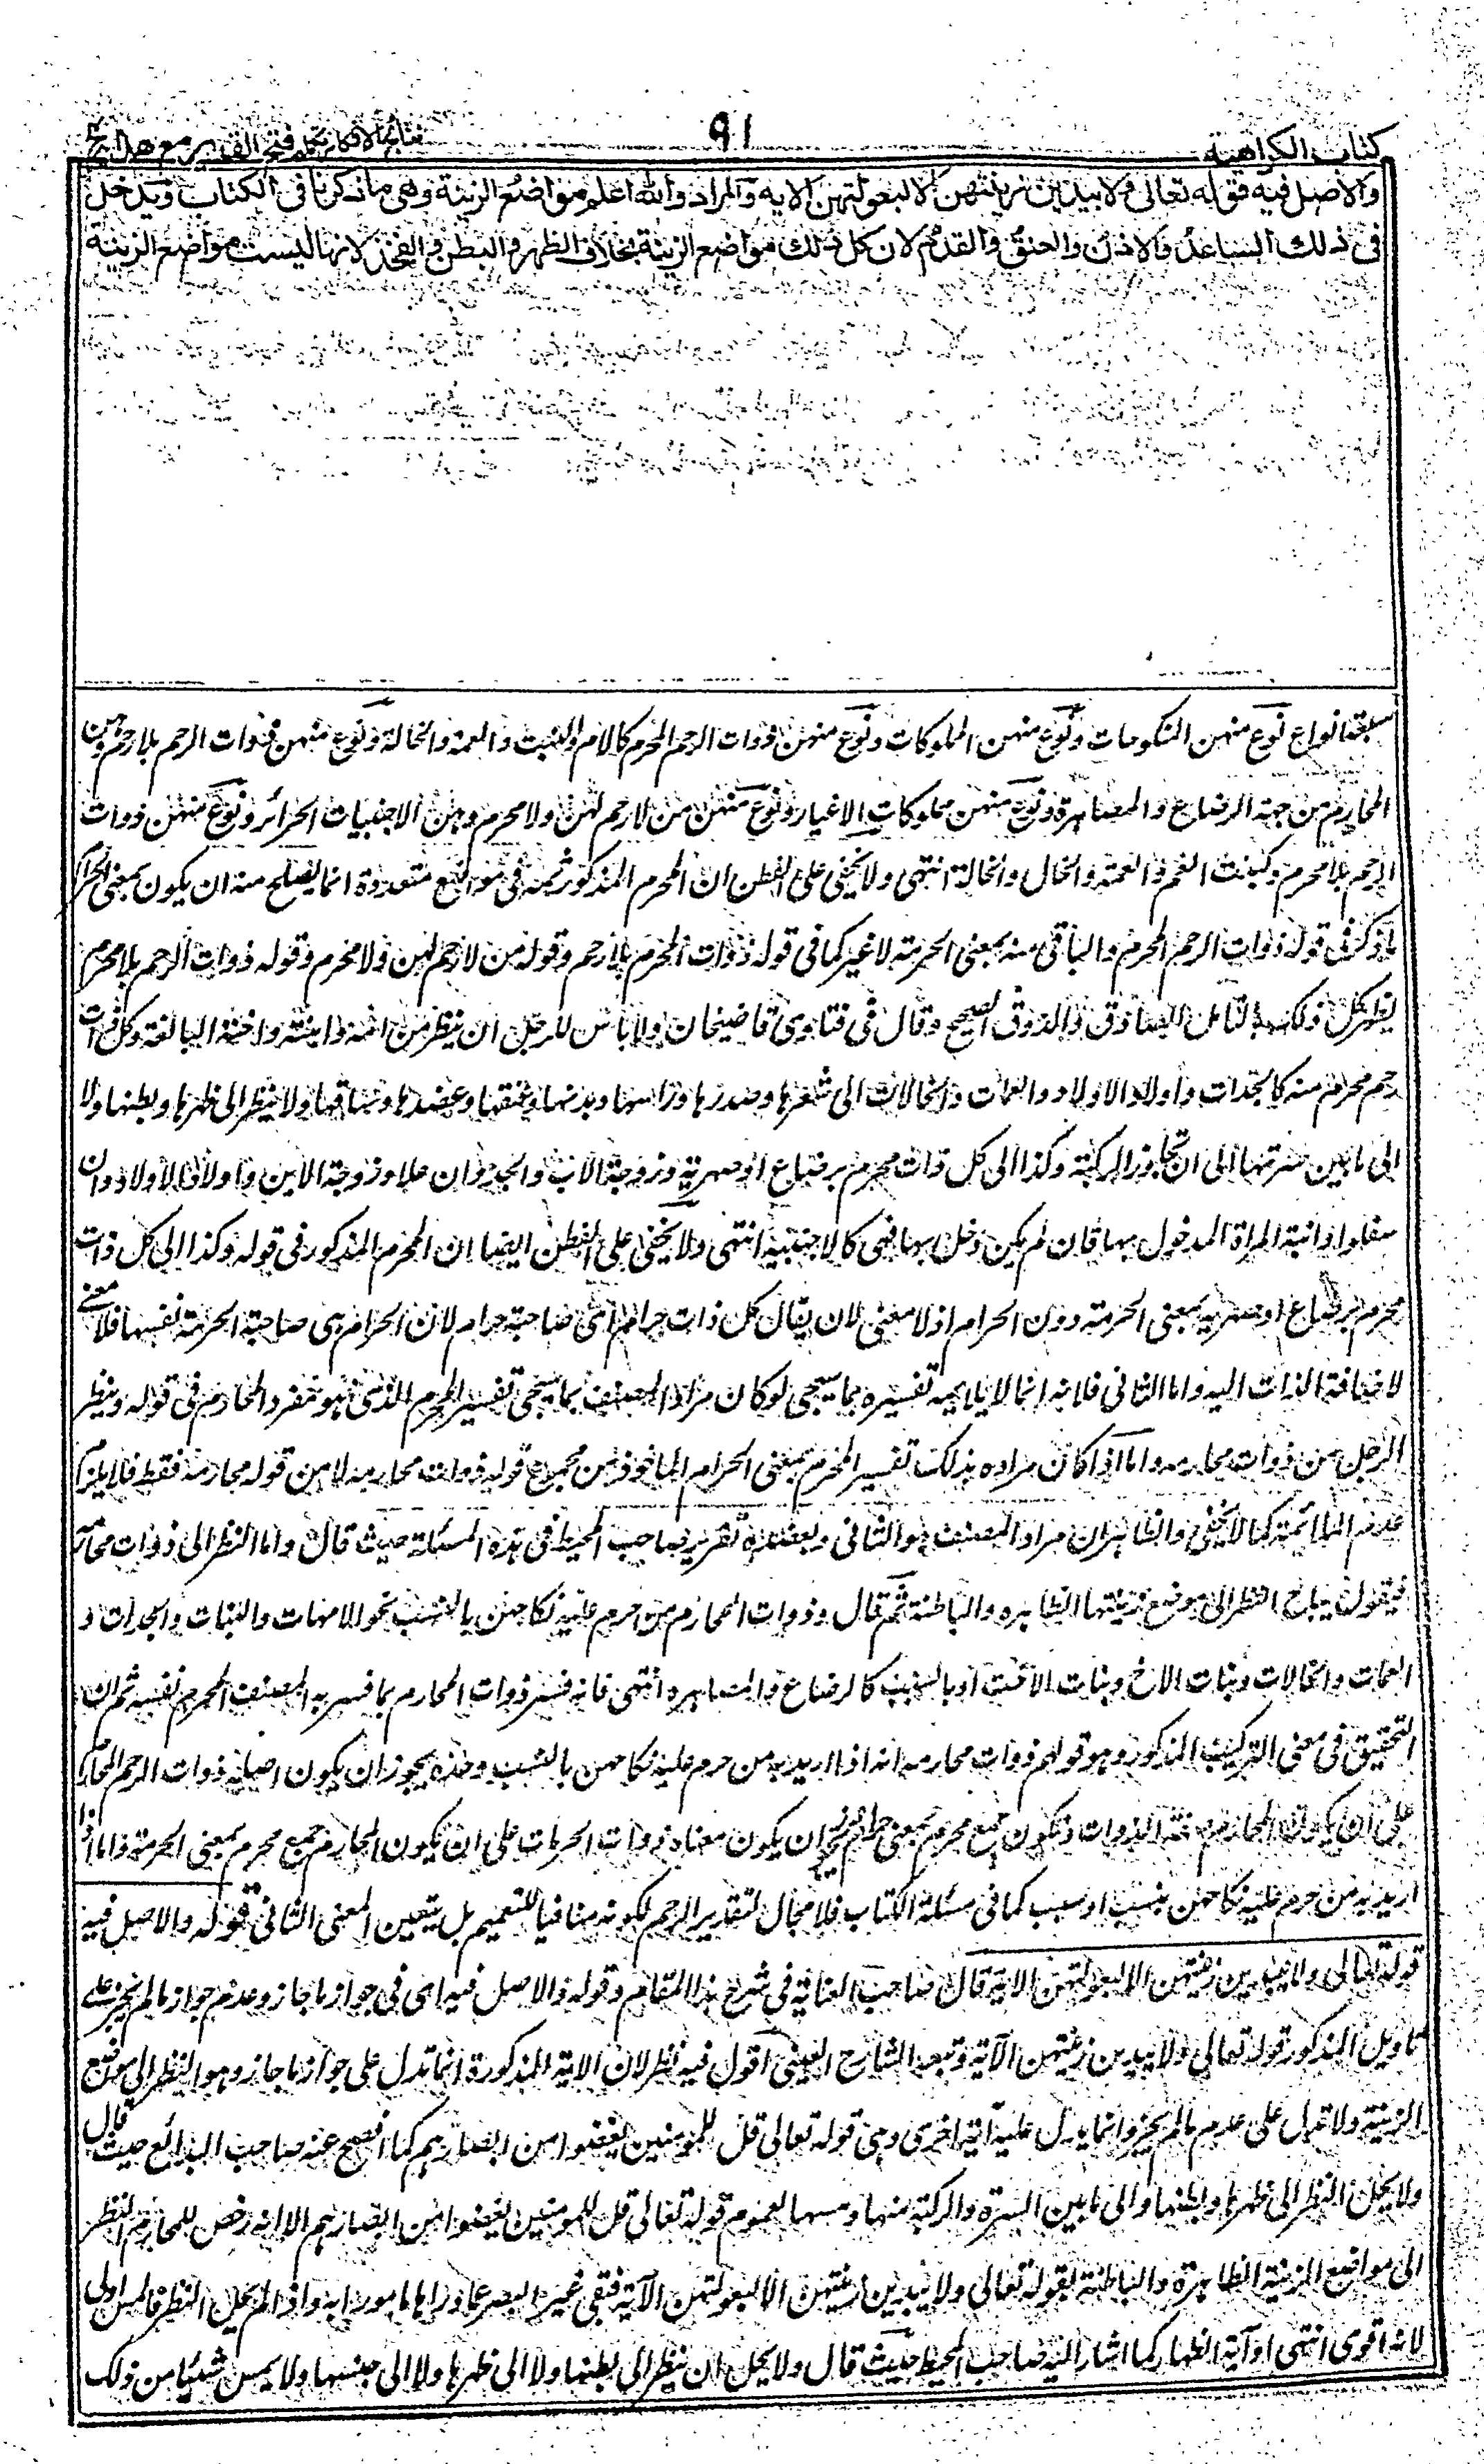 كتاب الكراهية
٩١
نتائج الافكار تكملة فتح القدير مع هداية ج
والاصل فيه قوله تعالى ولا يبدين زينتهن الا لبعولتهن الاية والمراد والله اعلم مواضع الزينة وهى ما ذكرنا فى الكتاب ويدخل
فى ذلك الساعد والاذن والعنق والقدم لان كل ذلك مواضع الزينة بخلاف الظهر والبطن والفخذ لانها ليست مواضع الزينة
سبعة انواع نوع منهن المنكوحات ونوع منهن المملوكات ونوع منهن ذوات الرحم المحرم كالام والبنت والعمة والخالة ونوع منهن ذوات الرحم بلا رحم وهن
المحارم من جهة الرضاع والمصاهرة ونوع منهن مملوكات الاغيار ونوع منهن من لا رحم لهن ولا محرم وهن الاجنبيات الحرائر ونوع منهن ذوات
الرحم بلا محرم وكبنت العم والعمة والخال والخالة انتهى ولا يخفى على الفطن ان المحرم المذكور ثمه فى مواضع متعددة انما يصلح منه ان يكون بمعنى الحرام
ما ذكر فى قوله ذوات الرحم المحرم والباقى منه بمعنى الحرمة لا غير كما فى قوله ذوات المحرم بلا رحم وقوله من لا رحم لهن ولا محرم وقوله ذوات الرحم بلا محرم
يظهر كل ذلك بالتامل الصادق والذوق الصحيح وقال فى فتاوى قاضيخان ولا باس للرجل ان ينظر من امه وابنته واخته البالغة وكل ذات
رحم محرم منه كالجدات واولاد الاولاد والعمات والخالات الى شعرها وصدرها وراسها وبدنها وعنقها وعضدها وساقها ولا ينظر الى ظهرها وبطنها ولا
الى ما بين سرتها الى ان تجاوز الركبة وكذا الى كل ذات محرم برضاع او صهرية وزوجة الاب والجد وان علا وزوجة الابن واولاد الاولاد وان
سفلوا وابنة المراة المدخول بها فان لم يكن دخل بها فهى كالاجنبية انتهى ولا يخفى على الفطن ايضا ان المحرم المذكور فى قوله وكذا الى كل ذات
محرم برضاع او صهرية بمعنى الحرمة دون الحرام اذ لا معنى لان يقال كل ذات حرام اى صاحبة حرام لان الحرام هى صاحبة الحرمة نفسها فلا معنى
لاضافة الذات اليه واما الثانى فلانه انما لا يلايمه تفسيره بما سيجى لو كان مراد المصنف بما سيجى تفسير المحرم الذى هو مفرد المحارم فى قوله وينظر
الرجل من ذوات محارمه واما اذا كان مراده بذلك تفسير المحرم بمعنى الحرام الماخوذ من مجموع قوله ذوات محارمه لا من قوله محارمه فقط فلا يلزم
عدم الملائمة كما لا يخفى والظاهر ان مراد المصنف هو الثانى ويعضده تقرير صاحب المحيط فى هذه المسئلة حيث قال واما النظر الى ذوات محارمه
فيقول يباح النظر الى موضع زينتها الظاهره والباطنة ثم قال وذوات المحارم من حرم عليه نكاحهن بالنسب نحو الامهات والبنات والجدات و
العمات والخالات وبنات الاخ وبنات الاخت او بالسبب كالرضاع والمصاهره انتهى فانه فسر ذوات المحارم بما فسر به المصنف المحرم نفسه ثم ان
التحقيق فى معنى التركيب المذكور وهو قولهم ذوات محارمه انه اذا اريد به من حرم عليه نكاحهن بالنسب وحده يجوز ان يكون اصله ذوات الرحم المحارم
على ان يكون المحارم صفة الذوات وتكون جمع محرم بمعنى حرام ويجوز ان يكون معناه ذوات الحرمات على ان يكون المحارم جمع محرم بمعنى الحرمة واما اذا
اريد به من حرم عليه نكاحهن بنسب او سبب كما فى مسئلة الكتاب فلا مجال لتقدير الرحم لكونه منافيا للتعميم بل يتعين المعنى الثانى قوله والاصل فيه
قوله تعالى ولا يبدين زينتهن الا لبعولتهن الاية قال صاحب العناية فى شرح هذا المقام وقوله والاصل فيه اى فى جواز ما جاز وعدم جواز ما لم يجز على
تاويل المذكور قوله تعالى ولا يبدين زينتهن الآية وتبعه الشارح العينى اقول فيه نظر لان الاية المذكورة انما تدل على جواز ما جاز وهو النظر الى مواضع
الزينة ولا تدل على عدم ما لم يجز وانما يدل عليه آية اخرى وهى قوله تعالى قل للمومنين يغضوا من ابصارهم كما افصح عنه صاحب البدائع حيث قال
ولا يحل النظر الى ظهرها وبطنها والى ما بين السرة والركبة منها ومسها لعموم قوله تعالى قل للمومنين يغضوا من ابصارهم الا انه رخص للمحارم النظر
الى مواضع الزينة الظاهرة والباطنة بقوله تعالى ولا يبدين زينتهن الا لبعولتهن الآية فبقى غض البصر عما وراها مامورا به واذا لم يحل النظر فالمس اولى
لانه اقوى انتهى او آية الظهار كما اشار اليه صاحب المحيط حيث قال ولا يحل ان ينظر الى بطنها ولا الى ظهرها ولا الى جنبها ولا يمس شيئا من ذلك